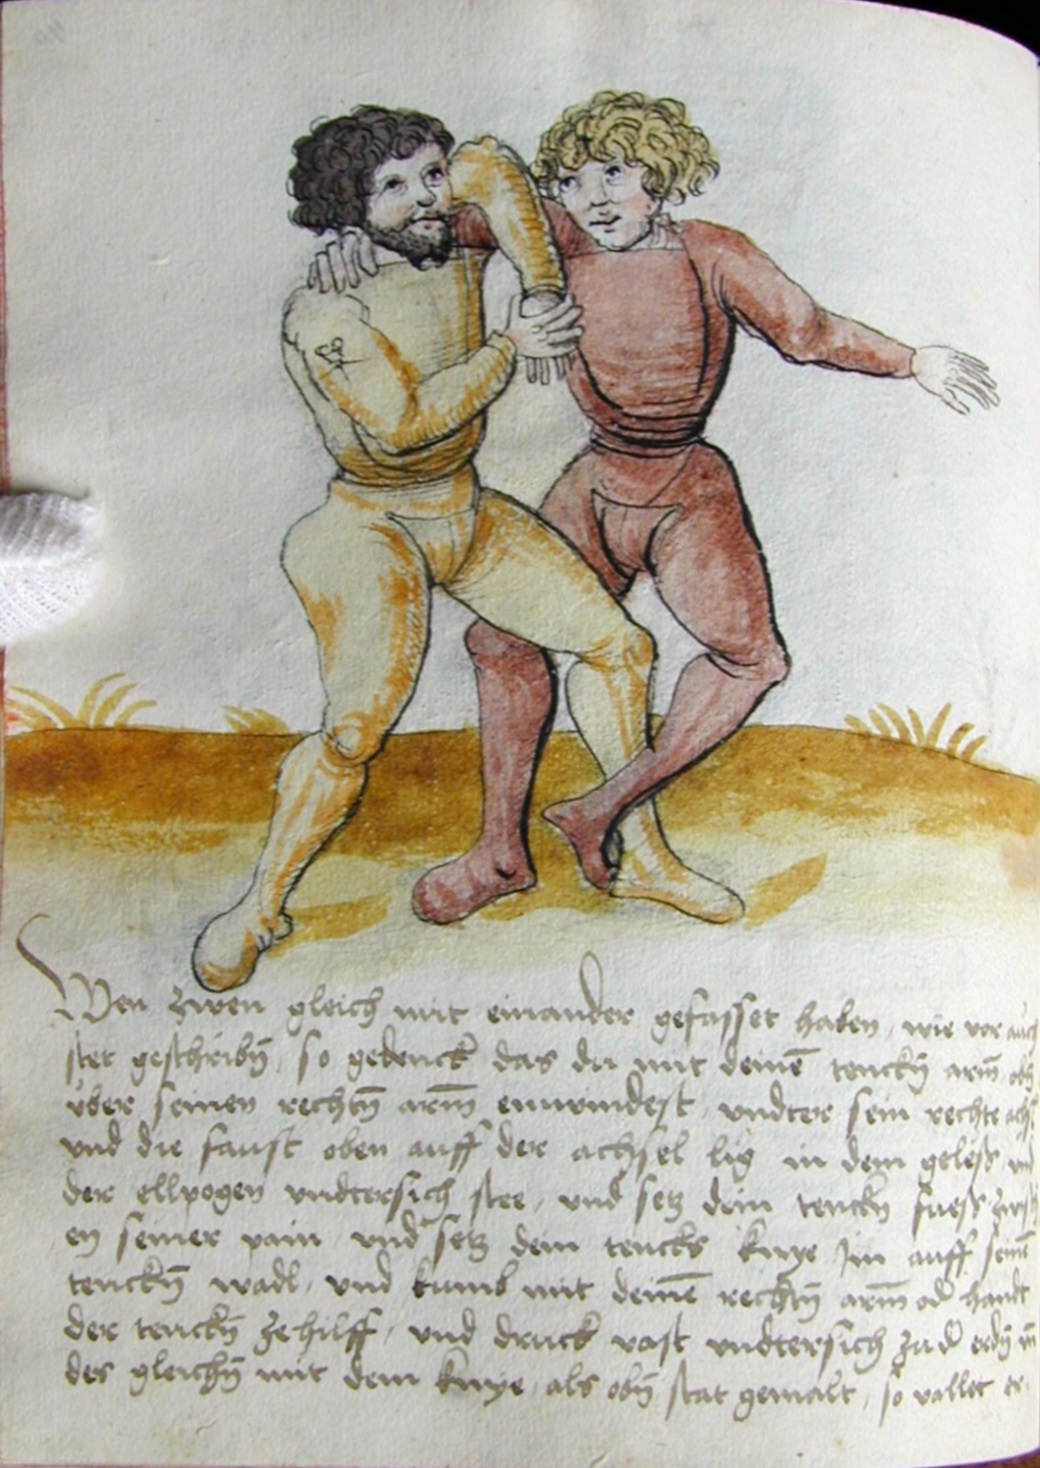 Wen zwen gleich mit einander gefasset haben, wie vor auch
stet geschribñ, so gedenck das du mit deinẽ tenckñ arm̃ obñ
vber seinen rechtñ arm̃ einwindest, vndter sein rechte achs
vnd die faust oben auff der achsel lig in dem geleß, vnd
der ellpogen vndtersich stee, vnd setz dein tenckn fueß zwisch
en seiner pain vnd setz dein tencks knye Im auff seinẽ
tenckñ wadl, vnd kumb mit deinẽ rechtñ arm̃ od̃ handt
der tenckñ ze hilff, vnd druck vast vndtersich zu d̃ erdñ
des gleichñ mit dem knye, als obñ stat gemalt, so vallet er.